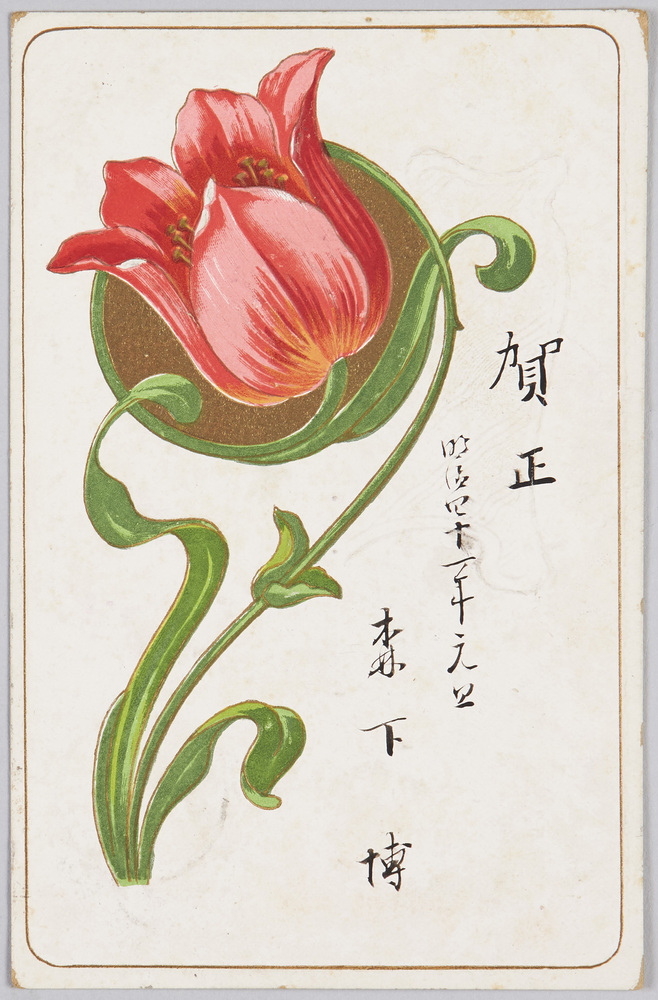 賀正
明治四十一年元旦
森下博